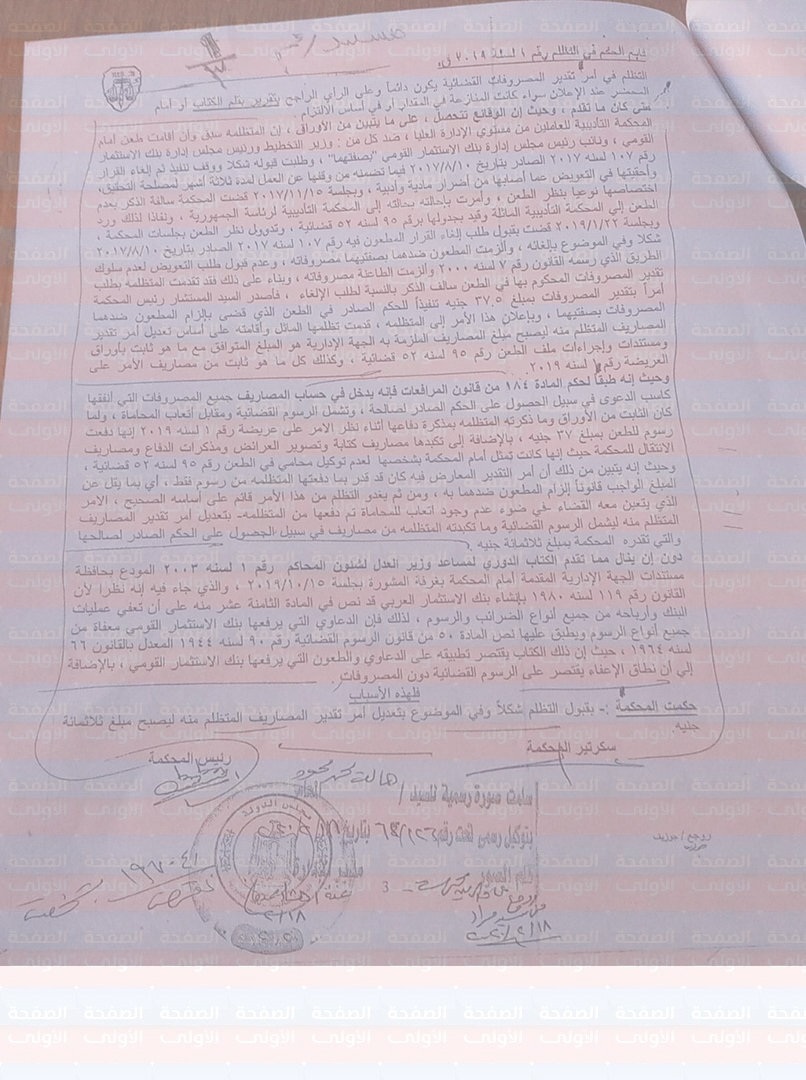 تابع الحكم في التظلم رقم ١ لسنة ٢٠١٩
التظلم في أمر تقدير المصروفات القضائية يكون دائماً وعلى الرأي الراجح بتقرير بقلم الكتاب أو أمام
المحضر عند الإعلان سواء كانت المنازعة في المقدار أو في أساس الالتزام .
متى كان ما تقدم ، وحيث إن الوقائع تتحصل ، على ما يتبين من الأوراق ، إن المتظلمه سبق وأن أقامت طعن أمام
المحكمة التأديبية للعاملين من مستوي الإدارة العليا ، ضد كل من : وزير التخطيط ورئيس مجلس إدارة بنك الاستثمار
القومي ، ونائب رئيس مجلس إدارة بنك الاستثمار القومي "بصفتهما" ، وطلبت قبوله شكلا ووقف تنفيذ ثم إلغاء القرار
رقم ١٠٧ لسنه ٢٠١٧ الصادر بتاريخ ٢٠١٧/٨/١٠ فيما تضمنه من وقفها عن العمل لمدة ثلاثة أشهر لمصلحة التحقيق،
وأحقيتها في التعويض عما أصابها من أضرار مادية وأدبية ، وبجلسة ٢٠١٧/١١/١٥ قضت المحكمة سالفة الذكر بعدم
اختصاصها نوعيا بنظر الطعن ، وأمرت بإحالته بحالته إلى المحكمة التأديبية لرئاسة الجمهورية ، ونفاذا لذلك ورد
الطعن إلي المحكمة التأديبية الماثلة وقيد بجدولها برقم ٩٥ لسنه ٥٢ قضائية ، وتدوول نظر الطعن بجلسات المحكمة ،
وبجلسة ٢٠١٩/١/٢٢ قضت بقبول طلب إلغاء القرار المطعون فيه رقم ١٠٧ لسنه ٢٠١٧ الصادر بتاريخ ٢٠١٧/٨/١٠
شكلا وفي الموضوع بإلغائه ، وألزمت المطعون ضدهما بصفتيهما مصروفاته ، وعدم قبول طلب التعويض لعدم سلوك
الطريق الذي رسمه القانون رقم ٧ لسنه ٢٠٠٠ وألزمت الطاعنة مصروفاته ، وبناء على ذلك فقد تقدمت المتظلمه بطلب
تقدير المصروفات المحكوم بها في الطعن سالف الذكر بالنسبة لطلب الإلغاء ، فأصدر السيد المستشار رئيس المحكمة
أمراً بتقدير المصروفات بمبلغ ٣٧.٥ جنيه تنفيذاً للحكم الصادر في الطعن الذي قضى بإلزام المطعون ضدهما
المصروفات بصفتيهما ، وبإعلان هذا الأمر إلى المتظلمه ، قدمت تظلمها الماثل وأقامته على أساس تعديل أمر تقدير
المصاريف المتظلم منه ليصبح مبلغ المصاريف الملزمة به الجهة الإدارية هو المبلغ المتوافق مع ما هو ثابت بأوراق
ومستندات وإجراءات ملف الطعن رقم ٩٥ لسنه ٥٢ قضائية ، وكذلك كل ما هو ثابت من مصاريف الأمر على
العريضة رقم ١ لسنه ٢٠١٩.
وحيث إنه طبقاً لحكم المادة ١٨٤ من قانون المرافعات فإنه يدخل في حساب المصاريف جميع المصروفات التي أنفقها
كاسب الدعوى في سبيل الحصول على الحكم الصادر لصالحة ، وتشمل الرسوم القضائية ومقابل أتعاب المحاماة ، ولما
كان الثابت من الأوراق وما ذكرته المتظلمه بمذكرة دفاعها أثناء نظر الامر على عريضة رقم ١ لسنه ٢٠١٩ إنها دفعت
رسوم للطعن بمبلغ ٣٧ جنيه ، بالإضافة إلى تكبدها مصاريف كتابة وتصوير العرائض ومذكرات الدفاع ومصاريف
الانتقال للمحكمة حيث إنها كانت تمثل أمام المحكمة بشخصها لعدم توكيل محامي في الطعن رقم ٩٥ لسنه ٥٢ قضائية ،
وحيث إنه يتبين من ذلك أن أمر التقدير المعارض فيه كان قد قدر بما دفعتها المتظلمه من رسوم فقط ، أي بما يقل عن
المبلغ الواجب قانوناً إلزام المطعون ضدهما به ، ومن ثم يغدو التظلم من هذا الأمر قائم على أساسه الصحيح ، الامر
الذي يتعين معه القضاء -في ضوء عدم وجود اتعاب للمحاماة تم دفعها من المتظلمه- بتعديل أمر تقدير المصاريف
المتظلم منه ليشمل الرسوم القضائية وما تكبدته المتظلمه من مصاريف في سبيل الحصول على الحكم الصادر لصالحها
والتي تقدره المحكمة بمبلغ ثلاثمائة جنيه .
دون إن ينال مما تقدم الكتاب الدوري لمساعد وزير العدل لشئون المحاكم رقم ١ لسنه ٢٠٠٣ المودع بحافظة
مستندات الجهة الإدارية المقدمة أمام المحكمة بغرفة المشورة بجلسة ٢٠١٩/١٠/١٥ ، والذي جاء فيه إنه نظرا لأن
القانون رقم ١١٩ لسنه ١٩٨٠ بإنشاء بنك الاستثمار العربي قد نص في المادة الثامنة عشر منه على أن تعفي عمليات
البنك وأرباحه من جميع أنواع الضرائب والرسوم ، لذلك فإن الدعاوي التي يرفعها بنك الاستثمار القومي معفاة من
جميع أنواع الرسوم ويطبق عليها نص المادة ٥٠ من قانون الرسوم القضائية رقم ٩٠ لسنه ١٩٤٤ المعدل بالقانون ٦٦
لسنه ١٩٦٤ ، حيث إن ذلك الكتاب يقتصر تطبيقه على الدعاوي والطعون التي يرفعها بنك الاستثمار القومي ، بالإضافة
إلي أن نطاق الإعفاء يقتصر على الرسوم القضائية دون المصروفات.
فلهذه الأسباب
حكمت المحكمة :- بقبول التظلم شكلاً وفي الموضوع بتعديل أمر تقدير المصاريف المتظلم منه ليصبح مبلغ ثلاثمائة
جنيه.
سكرتير المحكمة
رئيس المحكمة
سلمت صورة رسمية للسيد /
مجلس الدولة
3
الصفحة الأولى